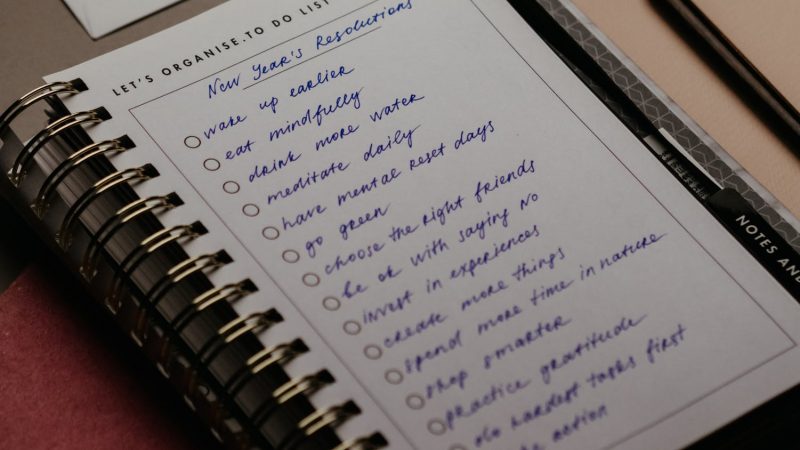 LET'S ORGANISE.TO DO LIST
New Year's Resolutions
wake up earlier
eat mindfully
drink more water
meditate daily
have mental reset days
go green
choose the right friends
be ok with saying no
invest in experiences
create more things
spend more time in nature
shop smarter
practice gratitude
do hardest tasks first
action
NOTES AND